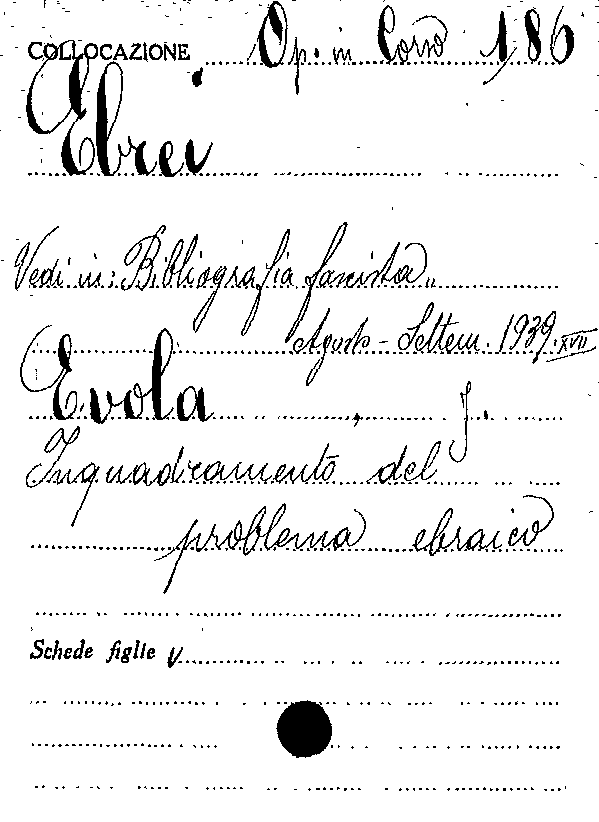 COLLOCAZIONE Op. in Corso 186
Ebrei
Vedi in: Bibliografia fascista„
Agosto - Settem. 1939. XVII
Evola, J.
Inquadramento del
problema ebraico
Schede figlie V